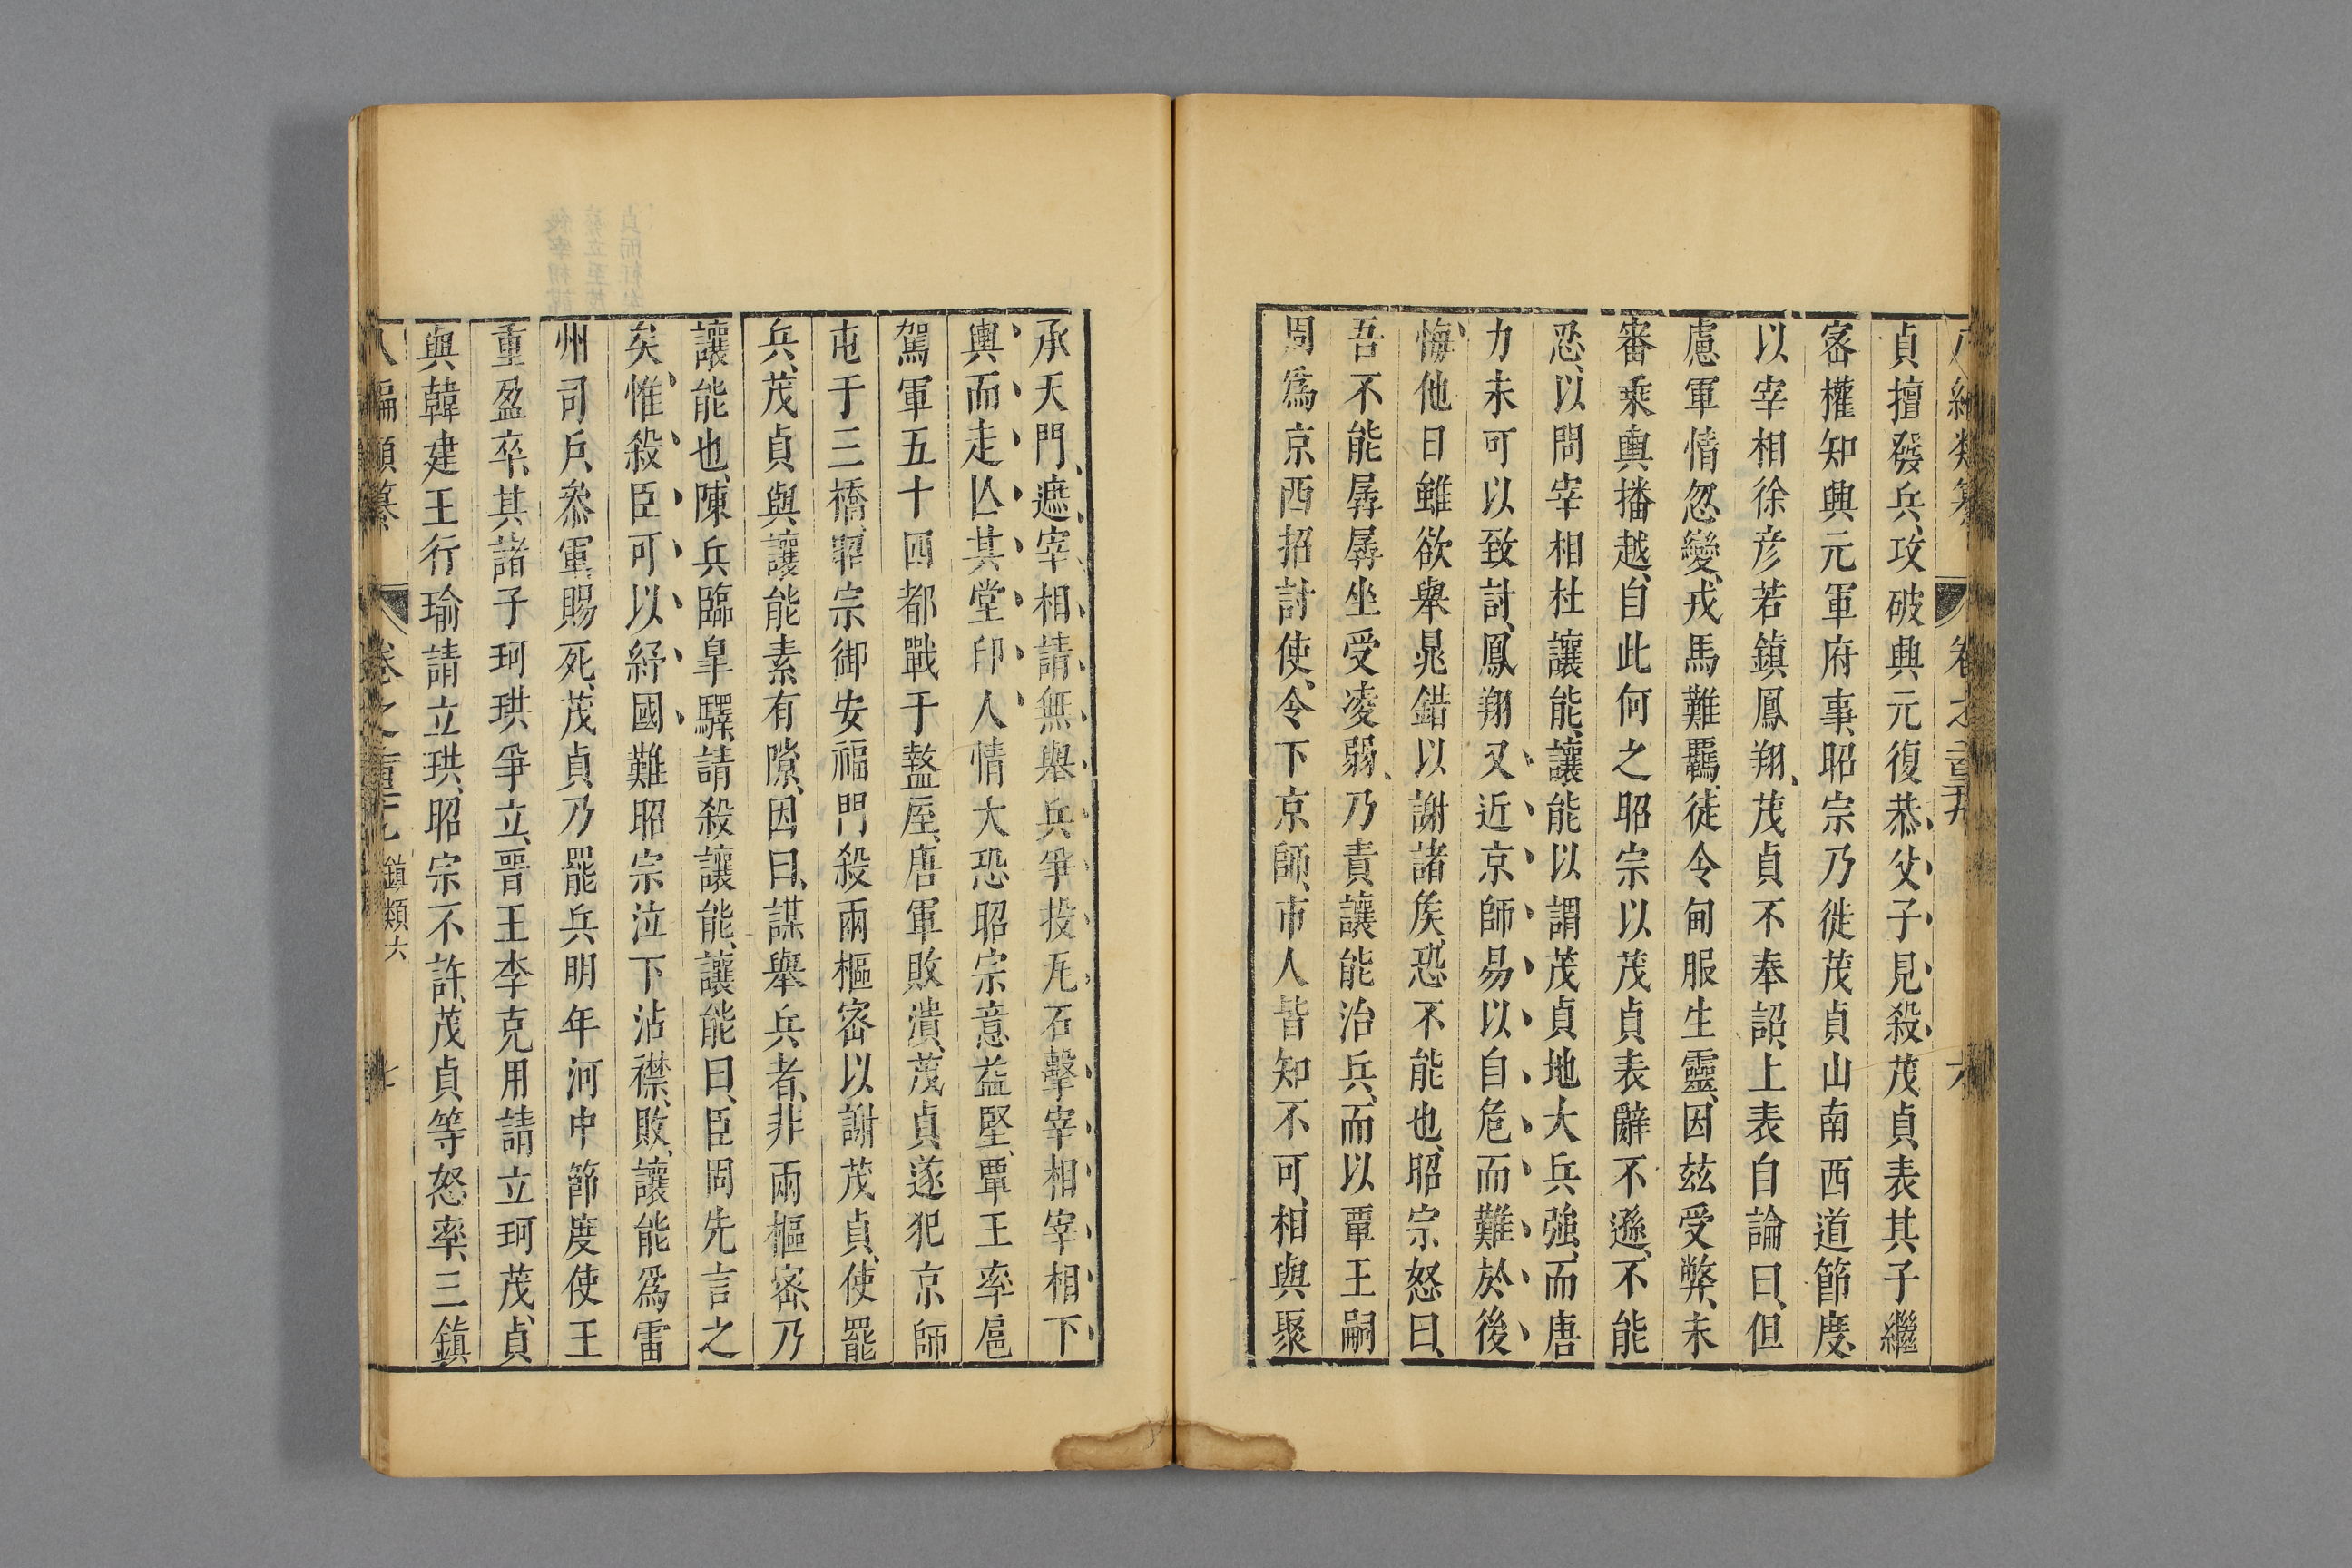 八編類纂 卷之 六
貞擅發兵、攻破興元復恭父子見殺茂貞、表其子繼
密權知興元軍府事、昭宗乃徙茂貞山南西道節度、
以宰相徐彥若鎮鳳翔、茂貞不奉詔、上表自論曰、但
慮軍情忽變、戎馬難羈、徒令甸服生靈、因茲受弊、未
審乘輿播越、自此何之昭宗以茂貞表辭不遜、不能
忍、以問宰相杜讓能、讓能以謂茂貞地大兵強、而唐
力未可以致討、鳳翔又近京師易以自危而難於後
悔他日雖欲舉晁錯以謝諸侯、恐不能也、昭宗怒曰、
吾不能孱孱坐受凌弱、乃責讓能治兵、而以覃王嗣
周爲京西招討使、令下京師、市人皆知不可、相與聚
承天門、遮宰相請無舉兵爭投瓦石擊宰相宰相下
輿而走亾其堂印人情大恐昭宗意益堅、覃王率扈
駕軍五十四都戰于盩厔、唐軍敗潰、茂貞遂犯京師
屯于三橋、昭宗御安福門殺兩樞密以謝茂貞、使罷
兵、茂貞與讓能素有隙、因曰、謀舉兵者、非兩樞密、乃
讓能也、陳兵臨皐驛、請殺讓能、讓能曰、臣固先言之
矣、惟殺臣可以紓國難昭宗泣下沾襟、敗讓能爲雷
州司戶、叅軍賜死、茂貞乃罷兵明年河中節度使王
重盈卒、其諸子珂珙爭立、晉王李克用請立珂茂貞
與韓建王行瑜請立珙、昭宗不許、茂貞等怒、率三鎮
八編類纂 卷之 鎮類六 七